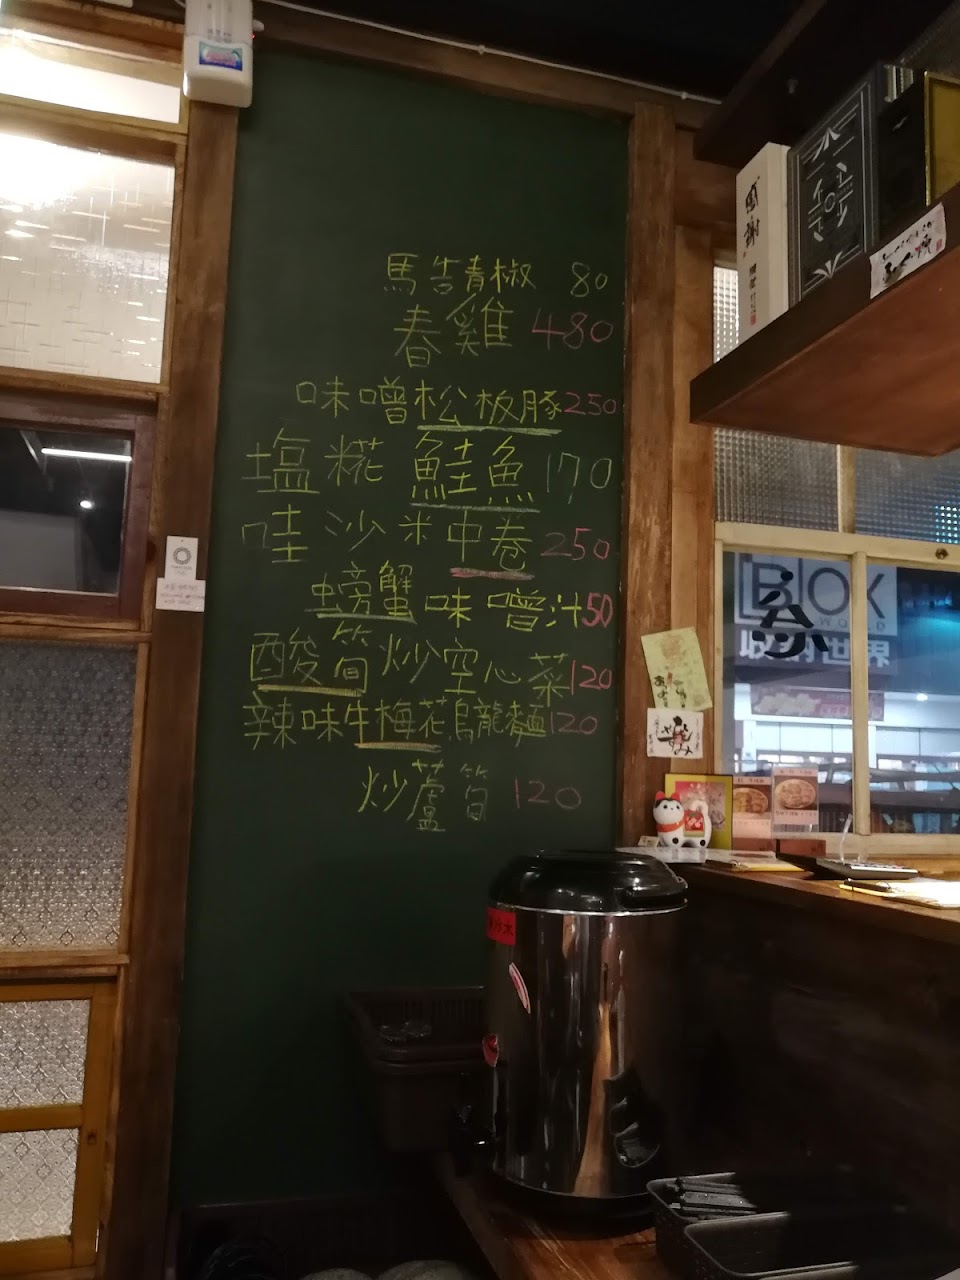 馬告青椒 80
春雞 480
味噌松板豚250
塩糀 鮭魚170
哇沙米中卷250
螃蟹味噌汁50
酸筍炒空心菜120
辣味牛梅花烏龍麵120
炒蘆筍 120
感謝
BLOX
WORLD
收納世界
冷水